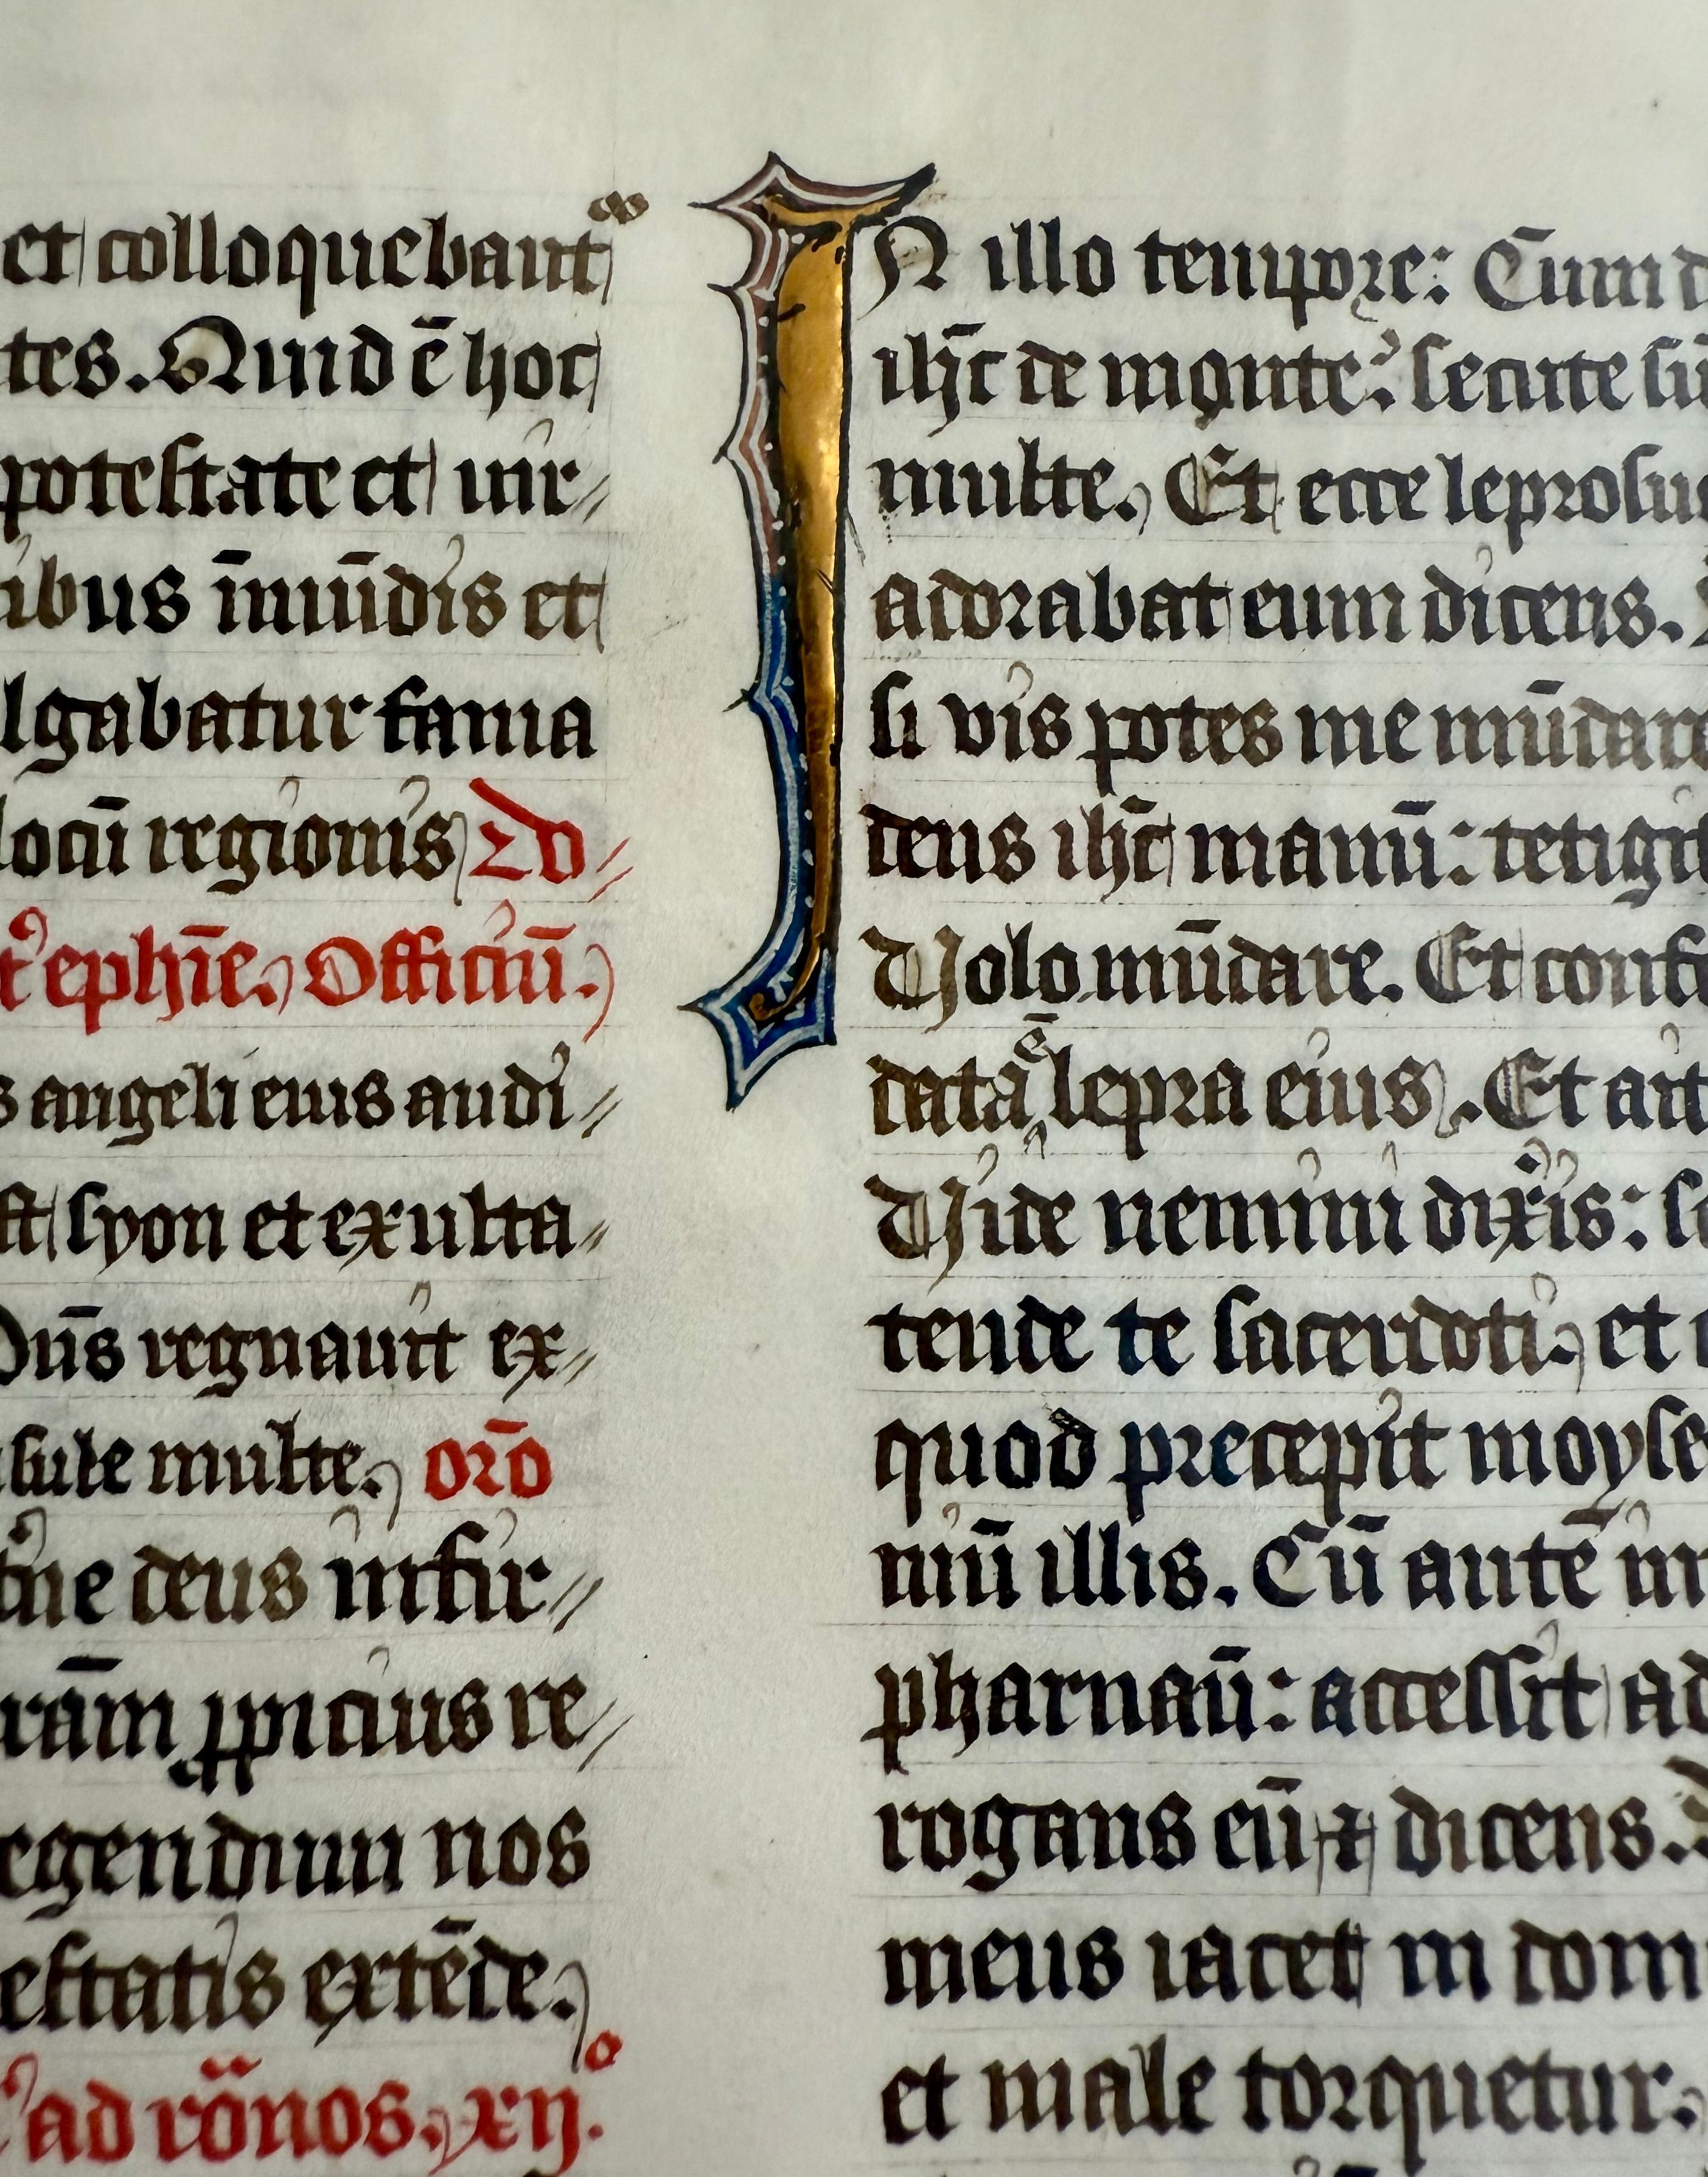 et colloquebant᷑
tes. Quid ē hoc
potestate et uir⸗
ibus īmūdis et
lgabatur fama
locū regionis Do⸗
ephīe. Officiū.
angeli eius audi⸗
syon et exulta⸗
Dn̄s regnauit ex⸗
sule multe. or̄o
deus infir⸗
ꝓpicius re⸗
egendum nos
estatis extēde.
ad rōnos. xij.º
In illo tempore: Cum
ih̄c de monte: secute sū
multe. Et ecce leprosus
adorabat eum dicens.
si vis potes me mūdare
dens ih̄c manū: tetigit
Volo mūdare. Et confe
data ē lepra eius. Et ait
Vide nemini dixeris:
tende te sacerdoti. et
quod precepit moyse
niū illis. Cū autē in
pharnaū: accessit ad
rogans eū ⁊ dicens.
meus iacet in domo
et male torquetur.